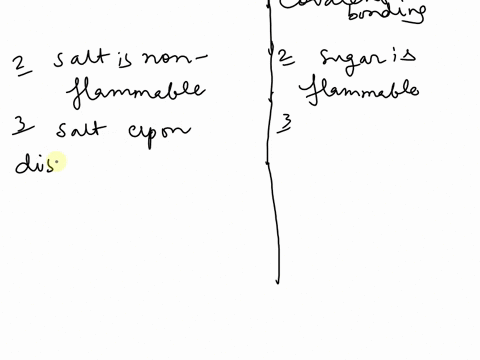 bonding
2 salt is non-
flammable
3 salt upon
dis
2 sugar is
flammable
3